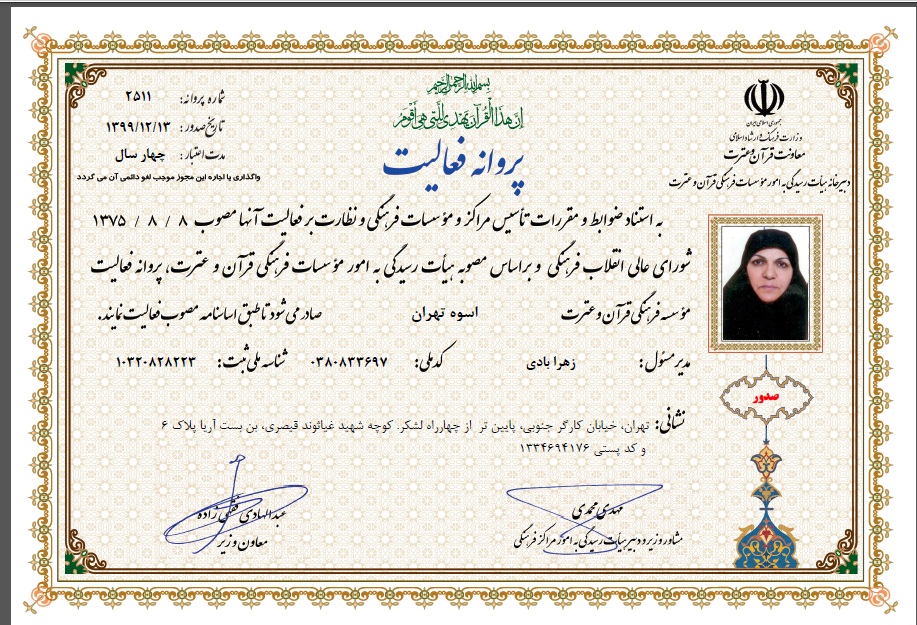 بسم الله الرحمن الرحیم
إن هذا القرآن یهدی للتی هی أقوم
پروانه فعالیت
جمهوری اسلامی ایران
وزارت فرهنگ و ارشاد اسلامی
معاونت قرآن و عترت
دبیرخانه هیأت رسیدگی به امور مؤسسات فرهنگی قرآن و عترت
شماره پروانه: ۲۵۱۱
تاریخ صدور: ۱۳۹۹/۱۲/۱۳
مدت اعتبار: چهار سال
واگذاری یا اجاره این مجوز موجب لغو دائمی آن می گردد
به استناد ضوابط و مقررات تأسیس مراکز و مؤسسات فرهنگی و نظارت بر فعالیت آنها مصوب ۸ / ۸ / ۱۳۷۵
شورای عالی انقلاب فرهنگی و بر اساس مصوبه هیأت رسیدگی به امور مؤسسات فرهنگی قرآن و عترت، پروانه فعالیت
مؤسسه فرهنگی قرآن و عترت اسوه تهران صادر می شود تا طبق اساسنامه مصوب فعالیت نمایند.
مدیر مسئول: زهرا بادی کد ملی: ۰۳۸۰۸۳۳۶۹۷ شناسه ملی ثبت: ۱۰۳۲۰۸۲۸۲۲۳
صدور
نشانی: تهران، خیابان کارگر جنوبی، پایین تر از چهارراه لشکر. کوچه شهید غیاثوند قیصری، بن بست آریا پلاک ۶
و کد پستی ۱۳۳۴۶۹۴۱۷۶
مهدی محمدی
مشاور وزیر و دبیر هیأت رسیدگی به امور مراکز فرهنگی
عبدالهادی فقهی زاده
معاون وزیر